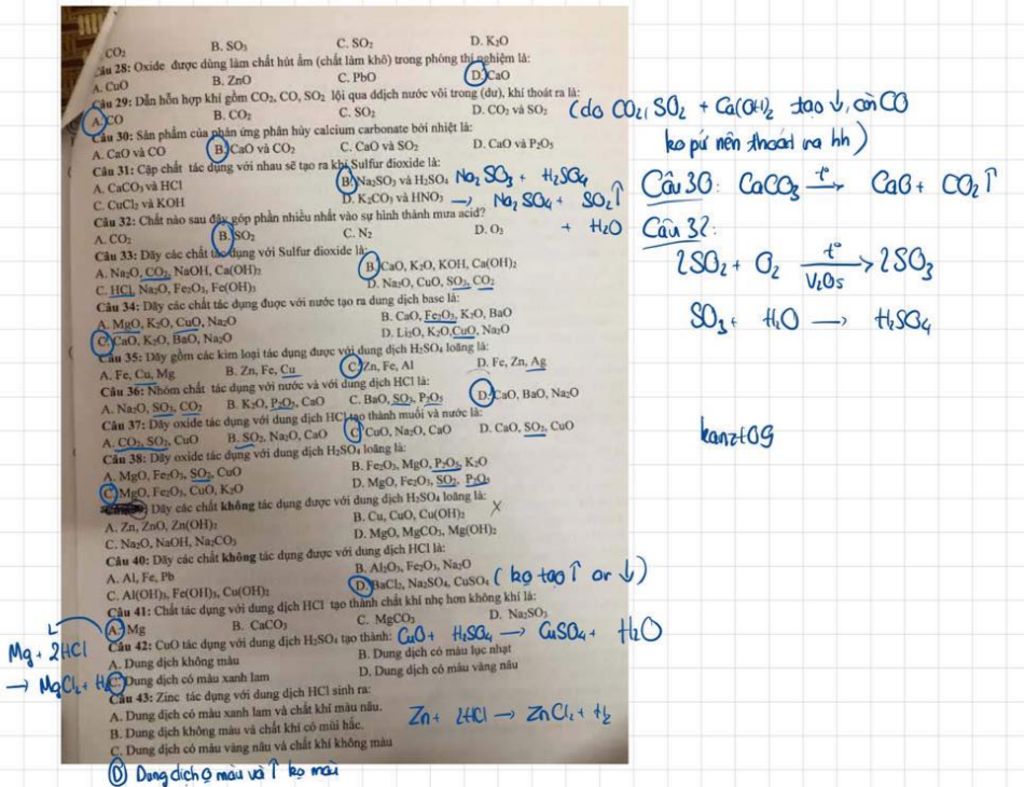 CO₂ B. SO₃ C. SO₂ D. K₂O
Câu 28: Oxide được dùng làm chất hút ẩm (chất làm khô) trong phòng thí nghiệm là:
A. CuO B. ZnO C. PbO D. CaO
Câu 29: Dẫn hỗn hợp khí gồm CO₂, CO, SO₂ lội qua ddịch nước vôi trong (dư), khí thoát ra là:
A. CO B. CO₂ C. SO₂ D. CO₂ và SO₂
(do CO₂, SO₂ + Ca(OH)₂ tạo ↓, còn CO
ko pứ nên thoát ra hh)
Câu 30: Sản phẩm của phản ứng phân hủy calcium carbonate bởi nhiệt là:
A. CaO và CO B. CaO và CO₂ C. CaO và SO₂ D. CaO và P₂O₅
Câu 30: CaCO₃ —t°→ CaO + CO₂↑
Câu 31: Cặp chất tác dụng với nhau sẽ tạo ra khí Sulfur dioxide là:
A. CaCO₃ và HCl B. Na₂SO₃ và H₂SO₄
C. CuCl₂ và KOH D. K₂CO₃ và HNO₃
Na₂SO₃ + H₂SO₄
→ Na₂SO₄ + SO₂↑
+ H₂O
Câu 32: Chất nào sau đây góp phần nhiều nhất vào sự hình thành mưa acid?
A. CO₂ B. SO₂ C. N₂ D. O₃
Câu 32:
2SO₂ + O₂ —t°, V₂O₅→ 2SO₃
SO₃ + H₂O → H₂SO₄
Câu 33: Dãy các chất tác dụng với Sulfur dioxide là:
A. Na₂O, CO₂, NaOH, Ca(OH)₂ B. CaO, K₂O, KOH, Ca(OH)₂
C. HCl, Na₂O, Fe₂O₃, Fe(OH)₃ D. Na₂O, CuO, SO₃, CO₂
Câu 34: Dãy các chất tác dụng được với nước tạo ra dung dịch base là:
A. MgO, K₂O, CuO, Na₂O B. CaO, Fe₂O₃, K₂O, BaO
C. CaO, K₂O, BaO, Na₂O D. Li₂O, K₂O, CuO, Na₂O
Câu 35: Dãy gồm các kim loại tác dụng được với dung dịch H₂SO₄ loãng là:
A. Fe, Cu, Mg B. Zn, Fe, Cu C. Zn, Fe, Al D. Fe, Zn, Ag
Câu 36: Nhóm chất tác dụng với nước và với dung dịch HCl là:
A. Na₂O, SO₃, CO₂ B. K₂O, P₂O₅, CaO C. BaO, SO₃, P₂O₅ D. CaO, BaO, Na₂O
Câu 37: Dãy oxide tác dụng với dung dịch HCl tạo thành muối và nước là:
A. CO₂, SO₂, CuO B. SO₂, Na₂O, CaO C. CuO, Na₂O, CaO D. CaO, SO₂, CuO
kanzt09
Câu 38: Dãy oxide tác dụng với dung dịch H₂SO₄ loãng là:
A. MgO, Fe₂O₃, SO₂, CuO B. Fe₂O₃, MgO, P₂O₅, K₂O
C. MgO, Fe₂O₃, CuO, K₂O D. MgO, Fe₂O₃, SO₂, P₂O₅
Dãy các chất không tác dụng được với dung dịch H₂SO₄ loãng là: X
A. Zn, ZnO, Zn(OH)₂ B. Cu, CuO, Cu(OH)₂
C. Na₂O, NaOH, Na₂CO₃ D. MgO, MgCO₃, Mg(OH)₂
Câu 40: Dãy các chất không tác dụng được với dung dịch HCl là:
A. Al, Fe, Pb B. Al₂O₃, Fe₂O₃, Na₂O
C. Al(OH)₃, Fe(OH)₃, Cu(OH)₂ D. BaCl₂, Na₂SO₄, CuSO₄ (ko tạo ↑ or ↓)
Câu 41: Chất tác dụng với dung dịch HCl tạo thành chất khí nhẹ hơn không khí là:
A. Mg B. CaCO₃ C. MgCO₃ D. Na₂SO₃
Mg + 2HCl
→ MgCl₂ + H₂
Câu 42: CuO tác dụng với dung dịch H₂SO₄ tạo thành: CuO + H₂SO₄ → CuSO₄ + H₂O
A. Dung dịch không màu B. Dung dịch có màu lục nhạt
C. Dung dịch có màu xanh lam D. Dung dịch có màu vàng nâu
Câu 43: Zinc tác dụng với dung dịch HCl sinh ra:
A. Dung dịch có màu xanh lam và chất khí màu nâu.
B. Dung dịch không màu và chất khí có mùi hắc.
C. Dung dịch có màu vàng nâu và chất khí không màu
Zn + 2HCl → ZnCl₂ + H₂
D Dung dịch 0 màu và ↑ ko màu